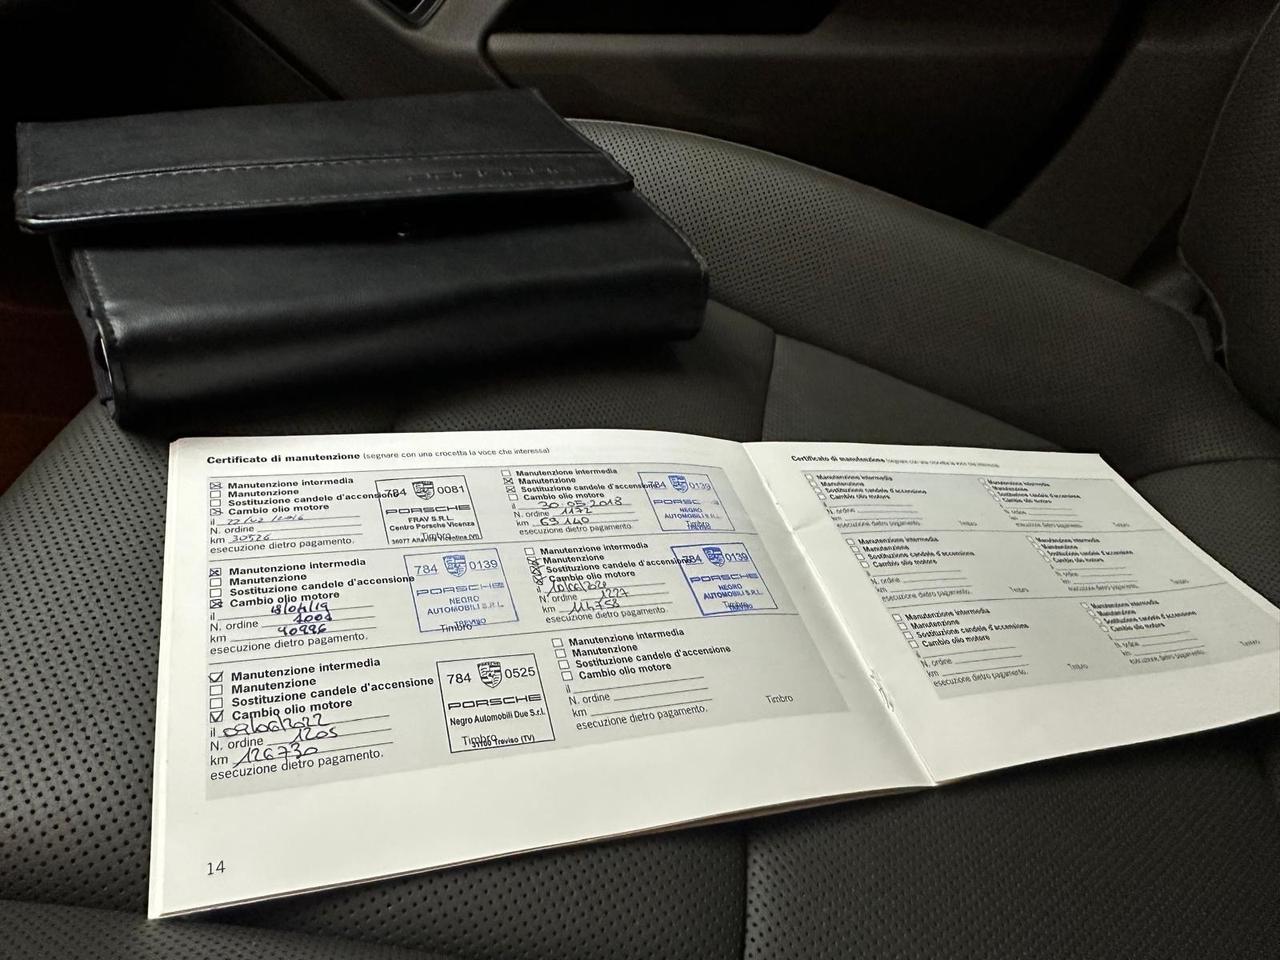 Certificato di manutenzione (segnare con una crocetta la voce che interessa)
Manutenzione intermedia
Manutenzione
Sostituzione candele d'accensione
Cambio olio motore
il
N. ordine
km 30526
esecuzione dietro pagamento.
784 0081
PORSCHE
FRAV S.R.L.
Centro Porsche Vicenza
Timbro
Manutenzione intermedia
Manutenzione
Sostituzione candele d'accensione
Cambio olio motore
il 30.05.2018
N. ordine 1172
km 69140
esecuzione dietro pagamento.
784 0139
PORSCHE
NEGRO
AUTOMOBILI S.R.L.
Timbro
TREVISO
Manutenzione intermedia
Manutenzione
Sostituzione candele d'accensione
Cambio olio motore
il 18/04/19
N. ordine 1001
km 90996
esecuzione dietro pagamento.
784 0139
PORSCHE
NEGRO
AUTOMOBILI S.R.L.
Timbro TREVISO
Manutenzione intermedia
Manutenzione
Sostituzione candele d'accensione
Cambio olio motore
il
N. ordine 1227
km 114758
esecuzione dietro pagamento.
784 0139
PORSCHE
NEGRO
AUTOMOBILI S.R.L.
Timbro
Manutenzione intermedia
Manutenzione
Sostituzione candele d'accensione
Cambio olio motore
il 09/06/2022
N. ordine 1205
km 126730
esecuzione dietro pagamento.
784 0525
PORSCHE
Negro Automobili Due S.r.l.
Timbro
31100 Treviso (TV)
Manutenzione intermedia
Manutenzione
Sostituzione candele d'accensione
Cambio olio motore
il
N. ordine
km
esecuzione dietro pagamento.
Timbro
14
Certificato di manutenzione (segnare con una crocetta la voce che interessa)
Manutenzione intermedia
Manutenzione
Sostituzione candele d'accensione
Cambio olio motore
il
N. ordine
km
esecuzione dietro pagamento.
Timbro
Manutenzione intermedia
Manutenzione
Sostituzione candele d'accensione
Cambio olio motore
il
N. ordine
km
esecuzione dietro pagamento.
Timbro
Manutenzione intermedia
Manutenzione
Sostituzione candele d'accensione
Cambio olio motore
il
N. ordine
km
esecuzione dietro pagamento.
Timbro
Manutenzione intermedia
Manutenzione
Sostituzione candele d'accensione
Cambio olio motore
il
N. ordine
km
esecuzione dietro pagamento.
Timbro
Manutenzione intermedia
Manutenzione
Sostituzione candele d'accensione
Cambio olio motore
il
N. ordine
km
esecuzione dietro pagamento.
Timbro
Manutenzione intermedia
Manutenzione
Sostituzione candele d'accensione
Cambio olio motore
il
N. ordine
km
esecuzione dietro pagamento.
Timbro